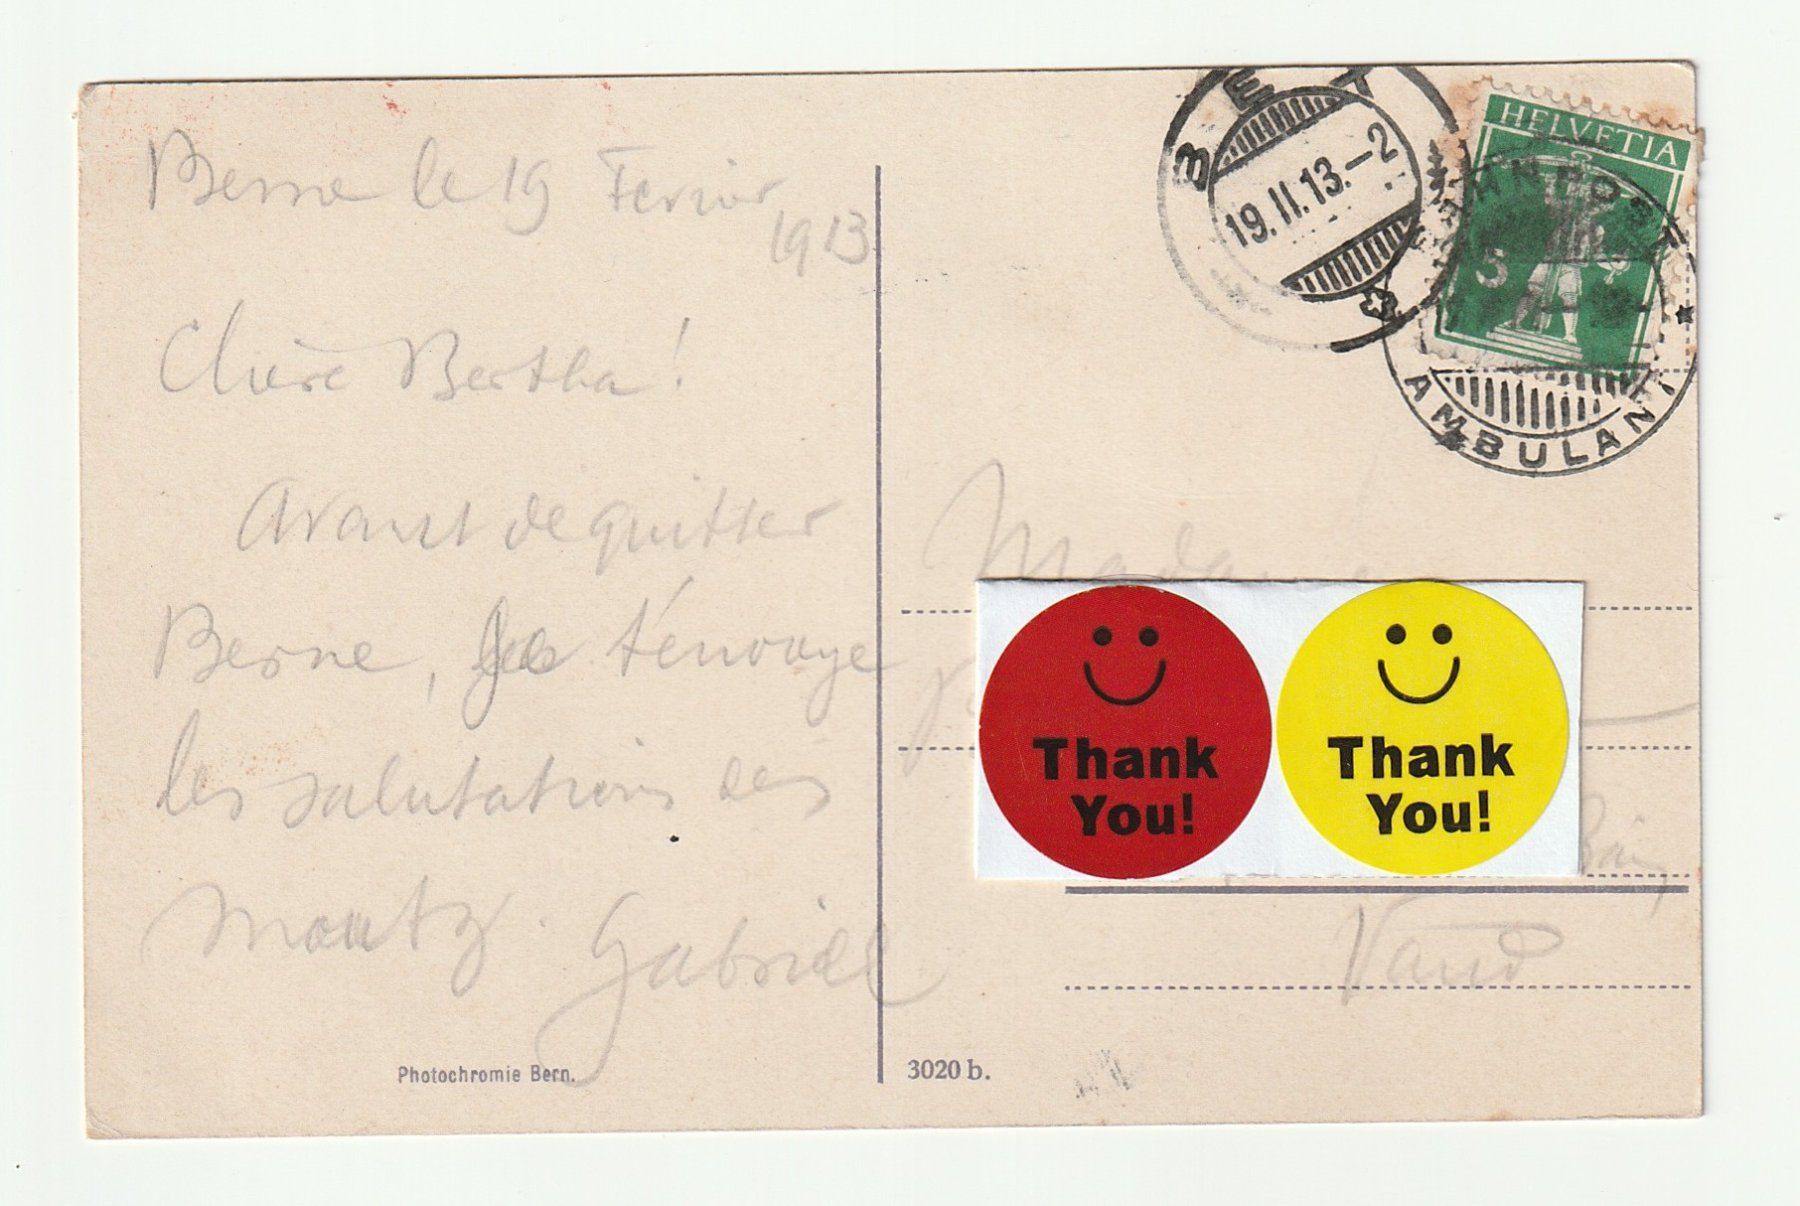 Berne le 19 Fevrier
1913
Chère Bertha!
Avant de quitter
Berne, je t'envoye
les salutations des
Moritz. Gabriel
Photochromie Bern.
BET
19.II.13.–2
HELVETIA
5
AMBULANT
Madame
Thank
You!
Thank
You!
Vaud
3020 b.